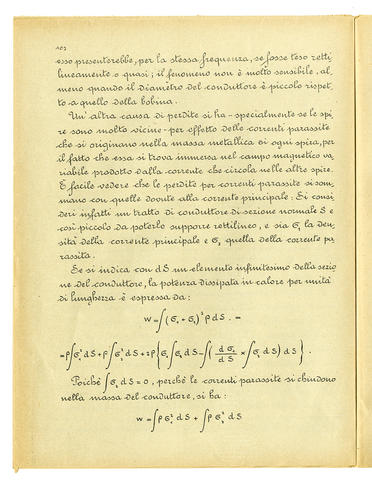 102
esso presenterebbe, per la stessa frequenza, se fosse teso retti
lineamente o quasi; il fenomeno non è molto sensibile, al,
meno quando il diametro del conduttore è piccolo rispet,
to a quello della bobina.
Un'altra causa di perdite si ha - specialmente se le spi,
re sono molto vicine - per effetto delle correnti parassite
che si originano nella massa metallica di ogni spira, per
il fatto che essa si trova immersa nel campo magnetico va,
riabile prodotto dalla corrente che circola nelle altre spire.
È facile vedere che le perdite per correnti parassite si som,
mano con quelle dovute alla corrente principale: Si consi
deri infatti un tratto di conduttore di sezione normale S e
così piccolo da poterlo suppore rettilineo, e sia σ₁ la den,
sità della corrente principale e σ₂ quella della corrente pa,
rassita.
Se si indica con dS un elemento infinitesimo della sezio
ne del conduttore, la potenza dissipata in calore per unità
di lunghezza è espressa da:
w = ∫(σ₁ + σ₂)² ρ dS. =
= ρ∫σ₁² dS + ρ∫σ₂² dS + 2ρ{σ₁∫σ₂ dS - ∫(dσ₁/dS × ∫σ₂ dS) dS}.
Poichè ∫σ₂ dS = 0, perchè le correnti parassite si chiudono
nella massa del conduttore, si ha:
w = ∫ρ σ₁² dS + ∫ρ σ₂² dS